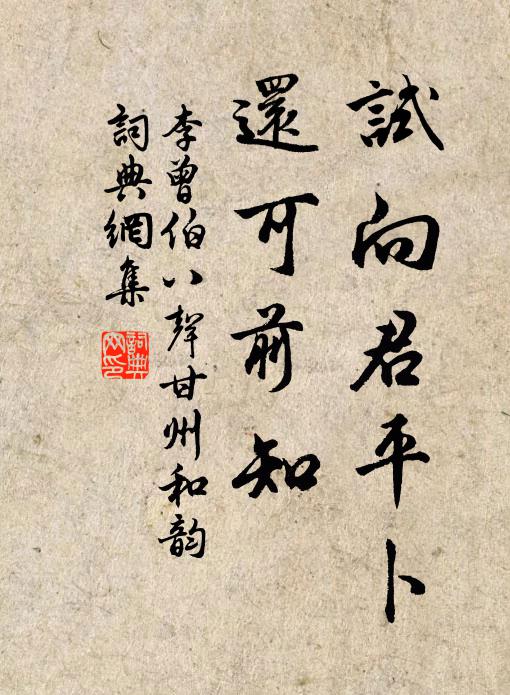 試向君平卜
還可前知
李曾伯八聲甘州和韵
詞典網集
詞典
网印